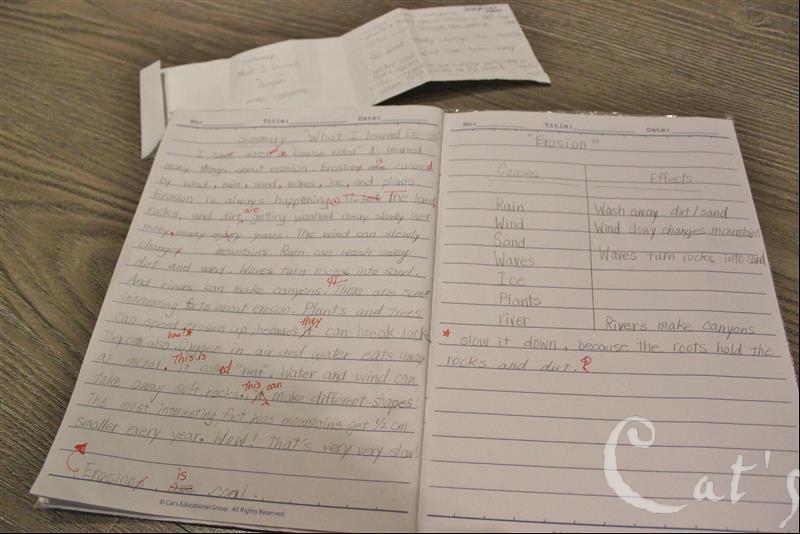 What I learned
No: Title: Date:
Summary "What I learned Erosion
I watched an "Erosion video" I learned
many things about erosion. Erosion is caused
by wind, rain, sand, waves, ice, and plants.
Erosion is always happening. The land
rocks, and dirt are getting washed away slowly over
many, many years. The wind can slowly
change mountains. Rain can wash away
dirt and sand. Waves turn rocks into sand.
And rivers can make canyons. There are
interesting facts about erosion. Plants and trees
can speed erosion up, because they can break rock
They can also how?* Oxygen in air and water eats away
at metal. This is called "rust". Water and wind can
take away soft rocks. This can make different shapes!
The most interesting fact was mountains get 1/2 cm
smaller every year. Wow! That's very very slow!
Erosion is cool
© Cat's Educational Group. All Rights Reserved.
No: Title: Date:
"Erosion"
Causes Effects
Rain Wash away dirt/sand
Wind Wind slowy changes mountain
Sand
Waves Waves turn rocks into sand
Ice
Plants
river Rivers make canyons
* slow it down, because the roots hold the
rocks and dirt.
Cat's